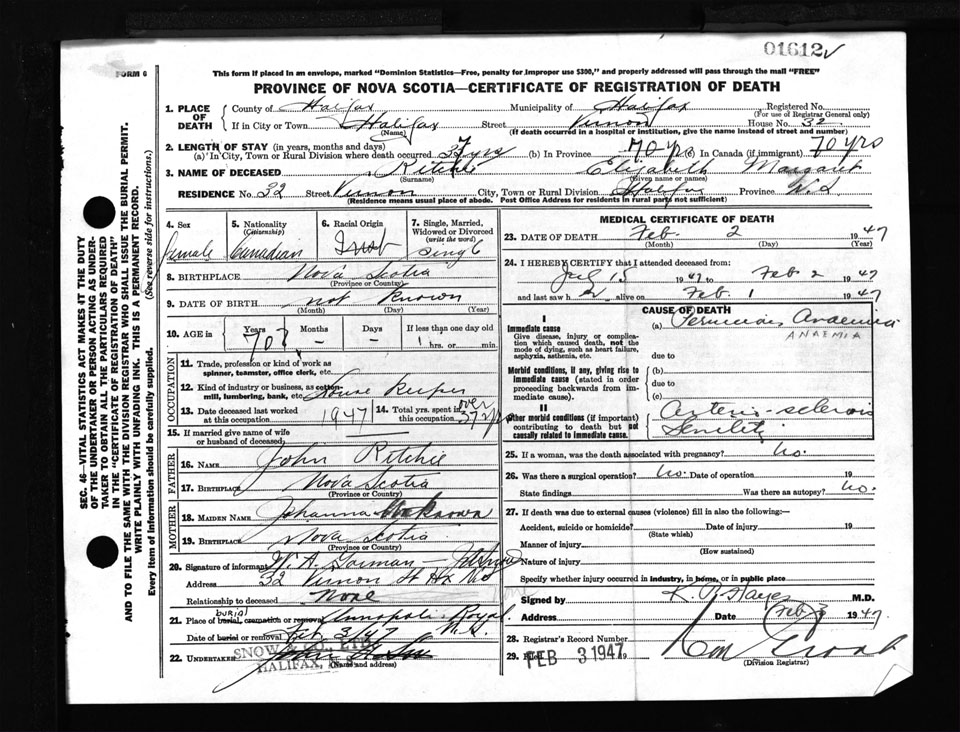 01612
FORM 6
This form if placed in an envelope, marked "Dominion Statistics—Free, penalty for improper use $300," and properly addressed will pass through the mail "FREE"
PROVINCE OF NOVA SCOTIA—CERTIFICATE OF REGISTRATION OF DEATH
1. PLACE OF DEATH County of Halifax Municipality of Halifax Registered No.
(For use of Registrar General only)
If in City or Town Halifax Street Vernon House No. 32
(Name) (If death occurred in a hospital or institution, give the name instead of street and number)
2. LENGTH OF STAY (in years, months and days)
(a) In City, Town or Rural Division where death occurred 37 yrs (b) In Province 70 yrs (c) In Canada (if immigrant) 70 yrs
3. NAME OF DECEASED Ritchie Elizabeth Margaret
(Surname) (Given name or names)
RESIDENCE No. 32 Street Vernon City, Town or Rural Division Halifax Province N.S
(Residence means usual place of abode. Post Office Address for residents in rural parts not sufficient)
4. Sex female
5. Nationality (Citizenship) Canadian
6. Racial Origin
7. Single, Married, Widowed or Divorced (write the word) Single
8. BIRTHPLACE Nova Scotia
(Province or Country)
9. DATE OF BIRTH not known
(Month) (Day) (Year)
10. AGE in Years 70 Months – Days – If less than one day old hrs. or min.
OCCUPATION
11. Trade, profession or kind of work as spinner, teamster, office clerk, etc.
12. Kind of industry or business, as cotton-mill, lumbering, bank, etc. House Keeper
13. Date deceased last worked at this occupation 1947
14. Total yrs. spent in this occupation over 37 yrs
15. If married give name of wife or husband of deceased
FATHER
16. NAME John Ritchie
17. BIRTHPLACE Nova Scotia
(Province or Country)
MOTHER
18. MAIDEN NAME Johanna Unknown
19. BIRTHPLACE Nova Scotia
(Province or Country)
20. Signature of informant W. A. Gorman
Address 32 Vernon St Hx NS
Relationship to deceased None
21. Place of burial, cremation or removal BURIAL Annapolis Royal N.S.
Date of burial or removal Feb 3/47
22. UNDERTAKER
SNOW & CO., LTD.
HALIFAX, N.S.
(Name and address)
MEDICAL CERTIFICATE OF DEATH
23. DATE OF DEATH Feb. 2 1947
(Month) (Day) (Year)
24. I HEREBY CERTIFY that I attended deceased from:
July 15 1947 to Feb 2 1947
and last saw h alive on Feb. 1 1947
CAUSE OF DEATH
I
Immediate cause
Give disease, injury or complication which caused death, not the mode of dying, such as heart failure, asphyxia, asthenia, etc.
(a) Pernicious Anaemia
ANAEMIA
due to
Morbid conditions, if any, giving rise to immediate cause (stated in order proceeding backwards from immediate cause).
(b)
due to
(c)
II
Other morbid conditions (if important) contributing to death but not causally related to immediate cause.
Arterio-sclerosis
Senility
25. If a woman, was the death associated with pregnancy? No.
26. Was there a surgical operation? No. Date of operation 19
State findings Was there an autopsy? No.
27. If death was due to external causes (violence) fill in also the following:—
Accident, suicide or homicide? Date of injury 19
(State which)
Manner of injury
(How sustained)
Nature of injury
Specify whether injury occurred in industry, in home, or in public place
Signed by M.D.
Address Date Feb 3 1947
28. Registrar's Record Number
29. FEB 3 1947 19
(Division Registrar)
SEC. 46—VITAL STATISTICS ACT MAKES IT THE DUTY
OF THE UNDERTAKER OR PERSON ACTING AS UNDER-
TAKER TO OBTAIN ALL THE PARTICULARS REQUIRED
IN THE "CERTIFICATE OF REGISTRATION OF DEATH"
AND TO FILE THE SAME WITH THE DIVISION REGISTRAR WHO SHALL ISSUE THE BURIAL PERMIT.
WRITE PLAINLY WITH UNFADING INK. THIS IS A PERMANENT RECORD.
Every item of information should be carefully supplied. (See reverse side for instructions.)